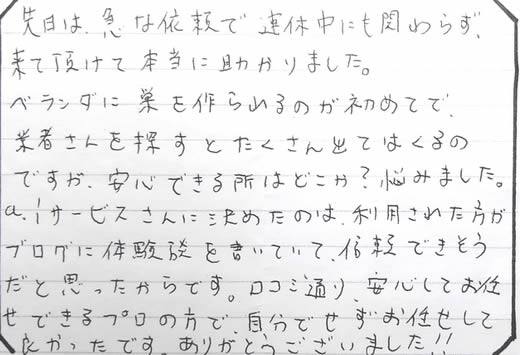 先日は、急な依頼で連休中にも関わらず、
来て頂けて本当に助かりました。
ベランダに巣を作られるのが初めてで、
業者さんを探すとたくさん出てはくるの
ですが、安心できる所はどこか?悩みました。
a.iサービスさんに決めたのは、利用された方が
ブログに体験談を書いていて、信頼できそう
だと思ったからです。口コミ通り、安心してお任
せできるプロの方で、自分でせずお任せして
良かったです。ありがとうございました!!